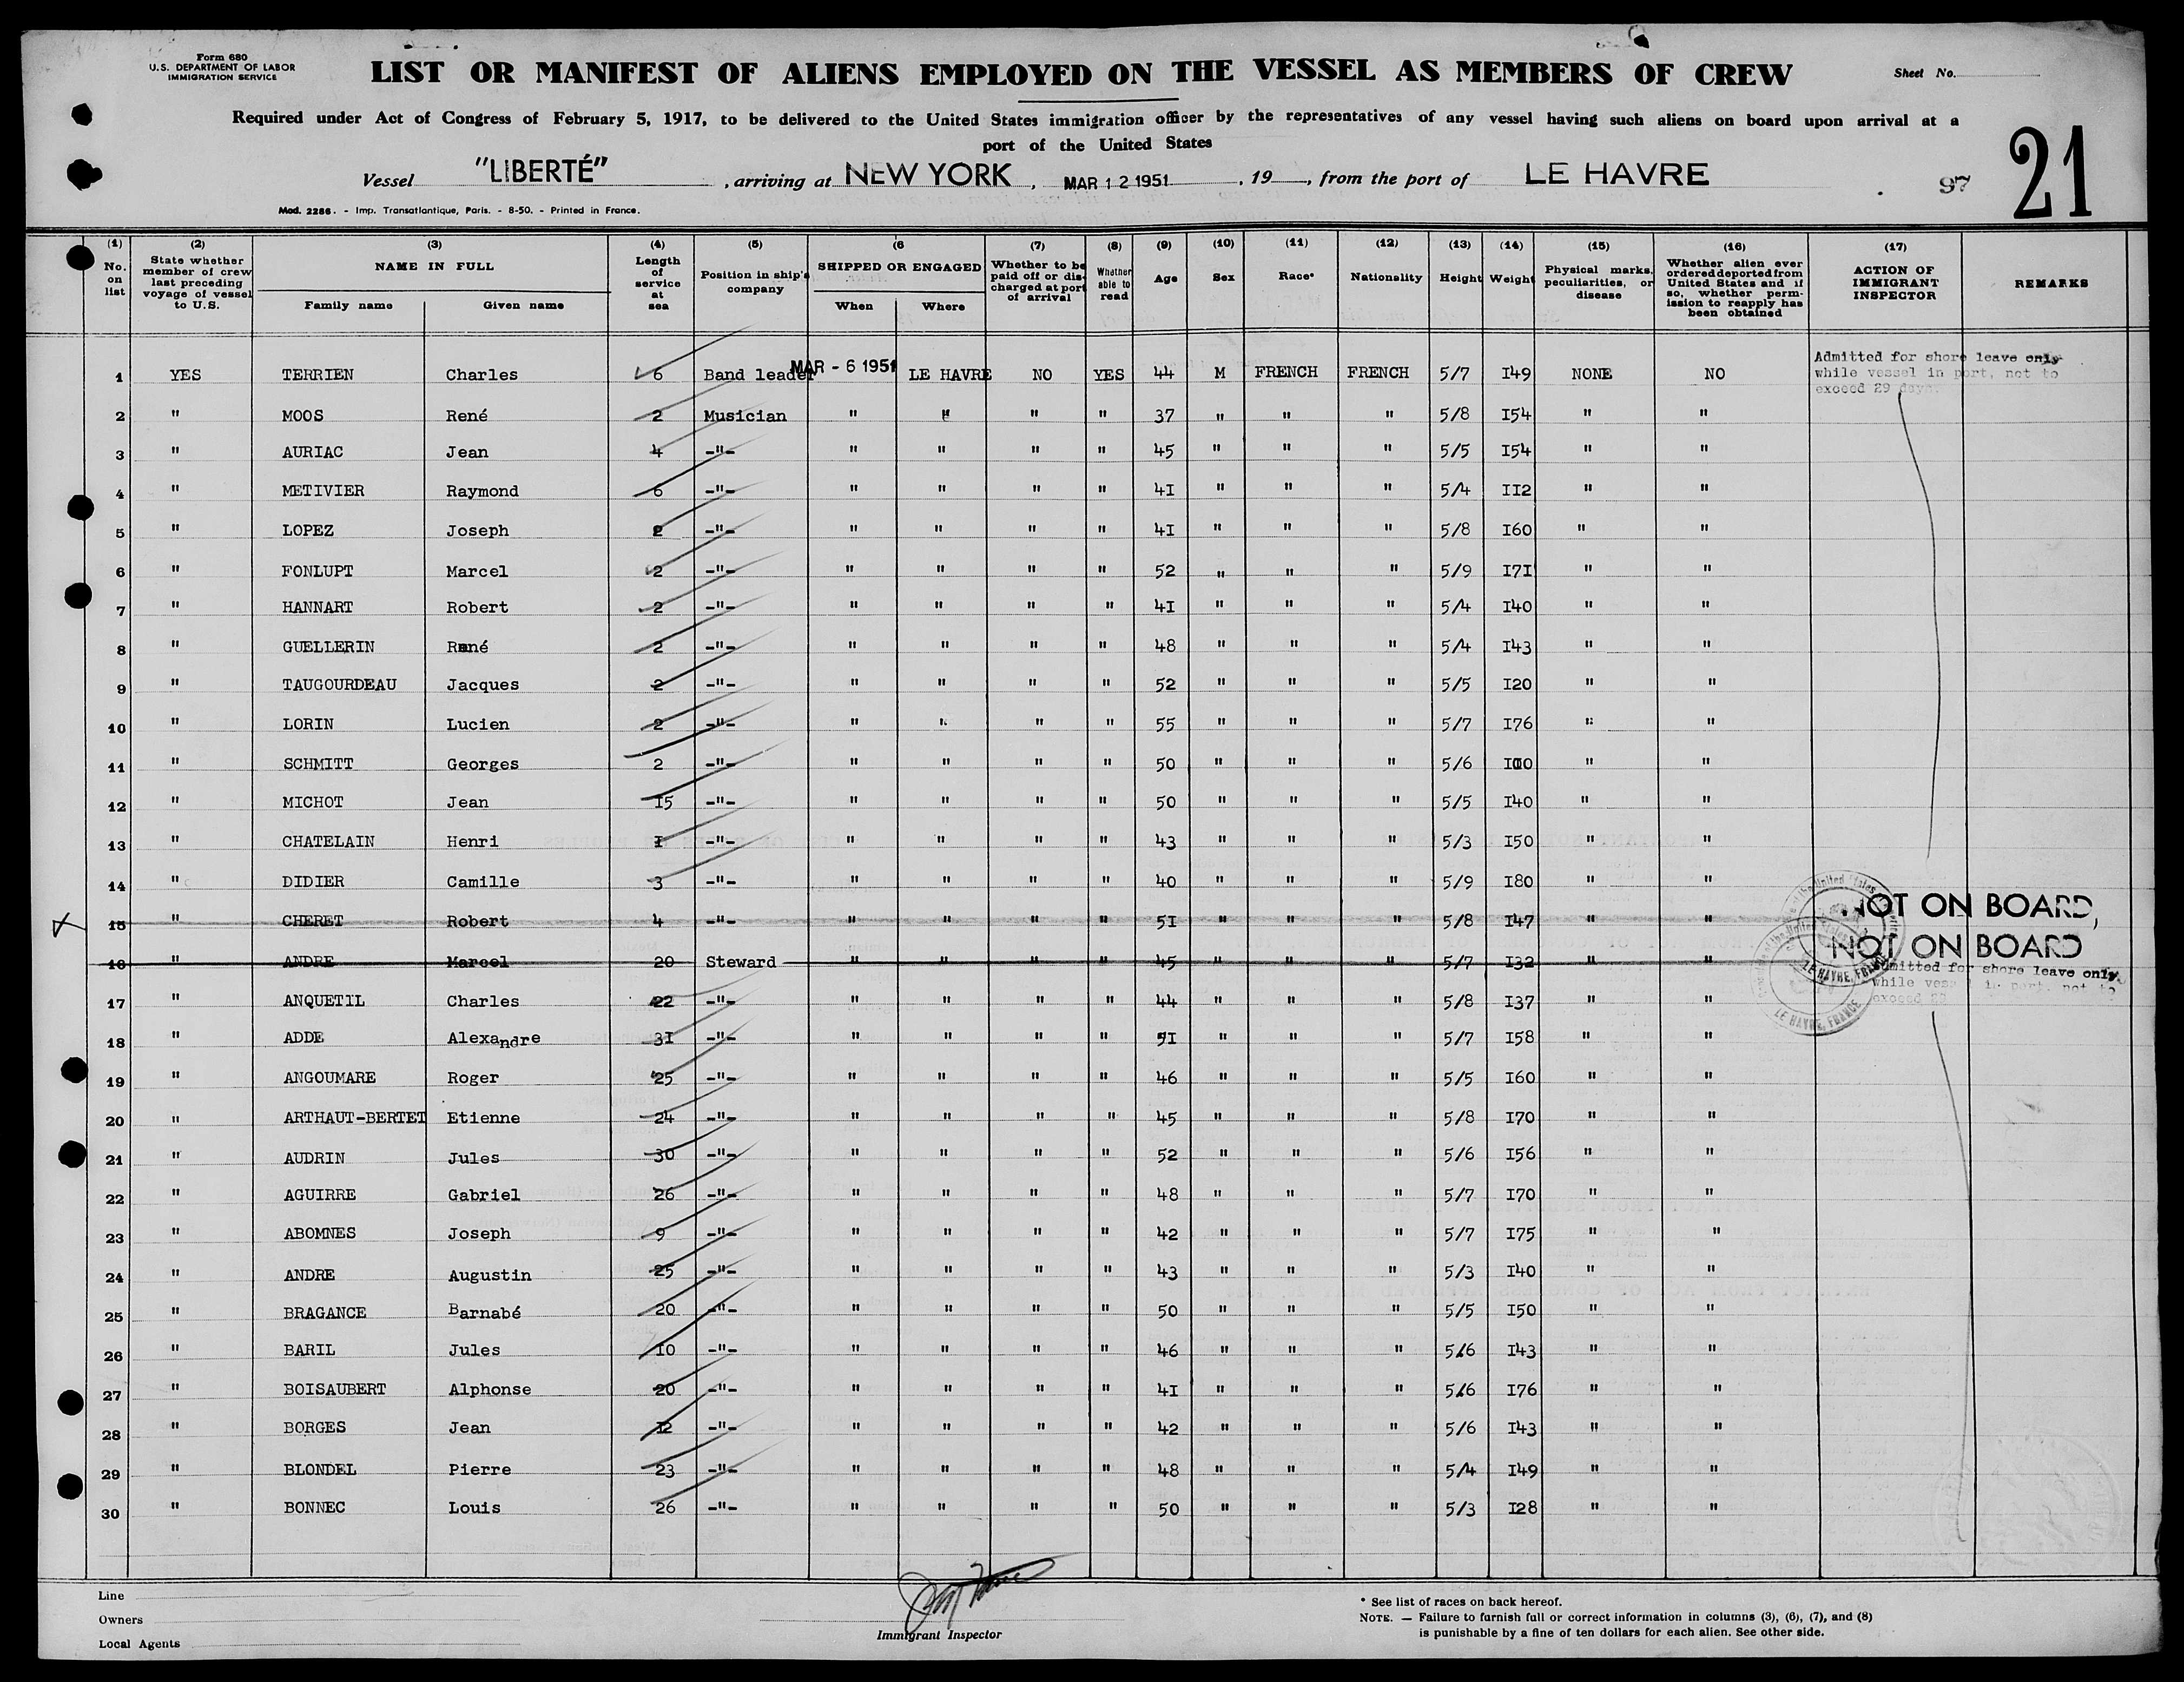 Form 680
U.S. DEPARTMENT OF LABOR
IMMIGRATION SERVICE
LIST OR MANIFEST OF ALIENS EMPLOYED ON THE VESSEL AS MEMBERS OF CREW
Sheet No.
Required under Act of Congress of February 5, 1917, to be delivered to the United States immigration officer by the representatives of any vessel having such aliens on board upon arrival at a
port of the United States
Vessel "LIBERTÉ" , arriving at NEW YORK , MAR 12 1951 , 19 , from the port of LE HAVRE 97 21
Mod. 2286. - Imp. Transatlantique, Paris. - 8-50. - Printed in France.
(1) No. on list (2) State whether member of crew last preceding voyage of vessel to U.S. (3) NAME IN FULL Family name Given name (4) Length of service at sea (5) Position in ship's company (6 SHIPPED OR ENGAGED When Where (7) Whether to be paid off or discharged at port of arrival (8) Whether able to read (9) Age (10) Sex (11) Race* (12) Nationality (13) Height (14) Weight (15) Physical marks, peculiarities, or disease (16) Whether alien ever ordered deported from United States and if so, whether permission to reapply has been obtained (17) ACTION OF IMMIGRANT INSPECTOR REMARKS
1 YES TERRIEN Charles 6 Band leader MAR - 6 1951 LE HAVRE NO YES 44 M FRENCH FRENCH 5/7 I49 NONE NO Admitted for shore leave only while vessel in port, not to exceed 29 days.
2 " MOOS René 2 Musician " " " " 37 " " " 5/8 I54 " "
3 " AURIAC Jean 4 -"- " " " " 45 " " " 5/5 I54 " "
4 " METIVIER Raymond 6 -"- " " " " 4I " " " 5/4 II2 " "
5 " LOPEZ Joseph 2 -"- " " " " 4I " " " 5/8 I60 " "
6 " FONLUPT Marcel 2 -"- " " " " 52 " " " 5/9 I7I " "
7 " HANNART Robert 2 -"- " " " " 4I " " " 5/4 I40 " "
8 " GUELLERIN René 2 -"- " " " " 48 " " " 5/4 I43 " "
9 " TAUGOURDEAU Jacques 2 -"- " " " " 52 " " " 5/5 I20 " "
10 " LORIN Lucien 2 -"- " " " " 55 " " " 5/7 I76 " "
11 " SCHMITT Georges 2 -"- " " " " 50 " " " 5/6 " "
12 " MICHOT Jean I5 -"- " " " " 50 " " " 5/5 I40 " "
13 " CHATELAIN Henri I -"- " " " " 43 " " " 5/3 I50 " "
14 " DIDIER Camille 3 -"- " " " " 40 " " " 5/9 I80 " "
15 " CHERET Robert 4 -"- " " " " 5I " " " 5/8 I47 " " NOT ON BOARD,
16 " ANDRE Marcel 20 Steward " " " " 45 " " " 5/7 I32 " " NOT ON BOARD
LE HAVRE, FRANCE
17 " ANQUETIL Charles 22 -"- " " " " 44 " " " 5/8 I37 " " Admitted for shore leave only while vessel in port, not to exceed 29
LE HAVRE, FRANCE
18 " ADDE Alexandre 3I -"- " " " " 5I " " " 5/7 I58 " "
19 " ANGOUMARE Roger 25 -"- " " " " 46 " " " 5/5 I60 " "
20 " ARTHAUT-BERTET Etienne 24 -"- " " " " 45 " " " 5/8 I70 " "
21 " AUDRIN Jules 30 -"- " " " " 52 " " " 5/6 I56 " "
22 " AGUIRRE Gabriel 26 -"- " " " " 48 " " " 5/7 I70 " "
23 " ABOMNES Joseph 9 -"- " " " " 42 " " " 5/7 I75 " "
24 " ANDRE Augustin 25 -"- " " " " 43 " " " 5/3 I40 " "
25 " BRAGANCE Barnabé 20 -"- " " " " 50 " " " 5/5 I50 " "
26 " BARIL Jules I0 -"- " " " " 46 " " " 5/6 I43 " "
27 " BOISAUBERT Alphonse 20 -"- " " " " 4I " " " 5/6 I76 " "
28 " BORGES Jean I2 -"- " " " " 42 " " " 5/6 I43 " "
29 " BLONDEL Pierre 23 -"- " " " " 48 " " " 5/4 I49 " "
30 " BONNEC Louis 26 -"- " " " " 50 " " " 5/3 I28 " "
Line
Owners
Local Agents
Immigrant Inspector
* See list of races on back hereof.
NOTE. — Failure to furnish full or correct information in columns (3), (6), (7), and (8)
is punishable by a fine of ten dollars for each alien. See other side.